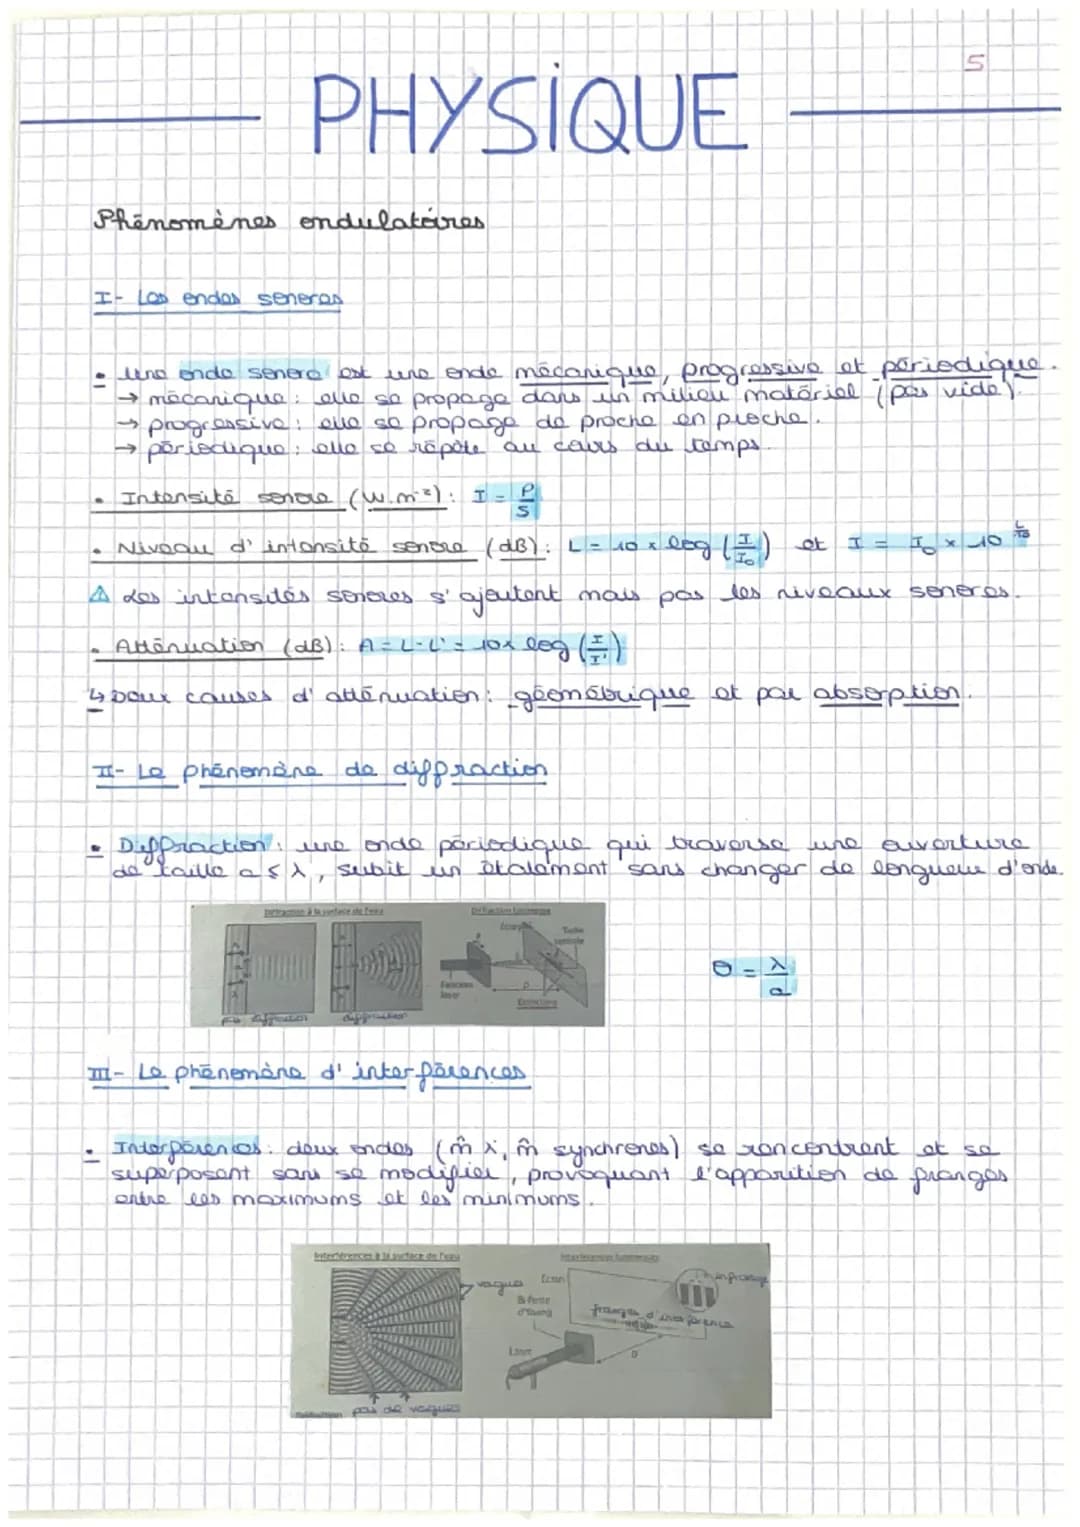 5
PHYSIQUE
Phénomènes ondulatoires
I- Les ondes sonores
• Une onde sonore est une onde mécanique, progressive et périodique.
→ mécanique : elle se propage dans un milieu matériel (pas vide).
→ progressive : elle se propage de proche en proche.
→ périodique : elle se répète au cours du temps.
• Intensité sonore (W.m⁻²) : I = P/S
• Niveau d'intensité sonore (dB) : L = 10 × log (I/I₀) et I = I₀ × 10^(L/10)
⚠ Les intensités sonores s'ajoutent mais pas les niveaux sonores.
• Atténuation (dB) : A = L-L' = 10× log (I/I')
↳ Deux causes d'atténuation : géométrique et par absorption.
II- Le phénomène de diffraction
• Diffraction : une onde périodique qui traverse une ouverture
de taille a ≤ λ, subit un étalement sans changer de longueur d'onde.
Diffraction à la surface de l'eau
Diffraction lumineuse
Écran
Tache
centrale
Faisceau
laser
D
Extinctions
pas diffraction
diffraction
θ = λ/a
III- Le phénomène d'interférences
• Interférences : deux ondes (m̂ λ, m̂ synchrones) se rencontrent et se
superposent sans se modifier, provoquant l'apparition de franges
entre les maximums et les minimums.
Interférences à la surface de l'eau
Interférences lumineuses
vagues
Écran
interfrange
Bi-fente
d'Young
franges d'interférence
Laser
D
pas de vagues